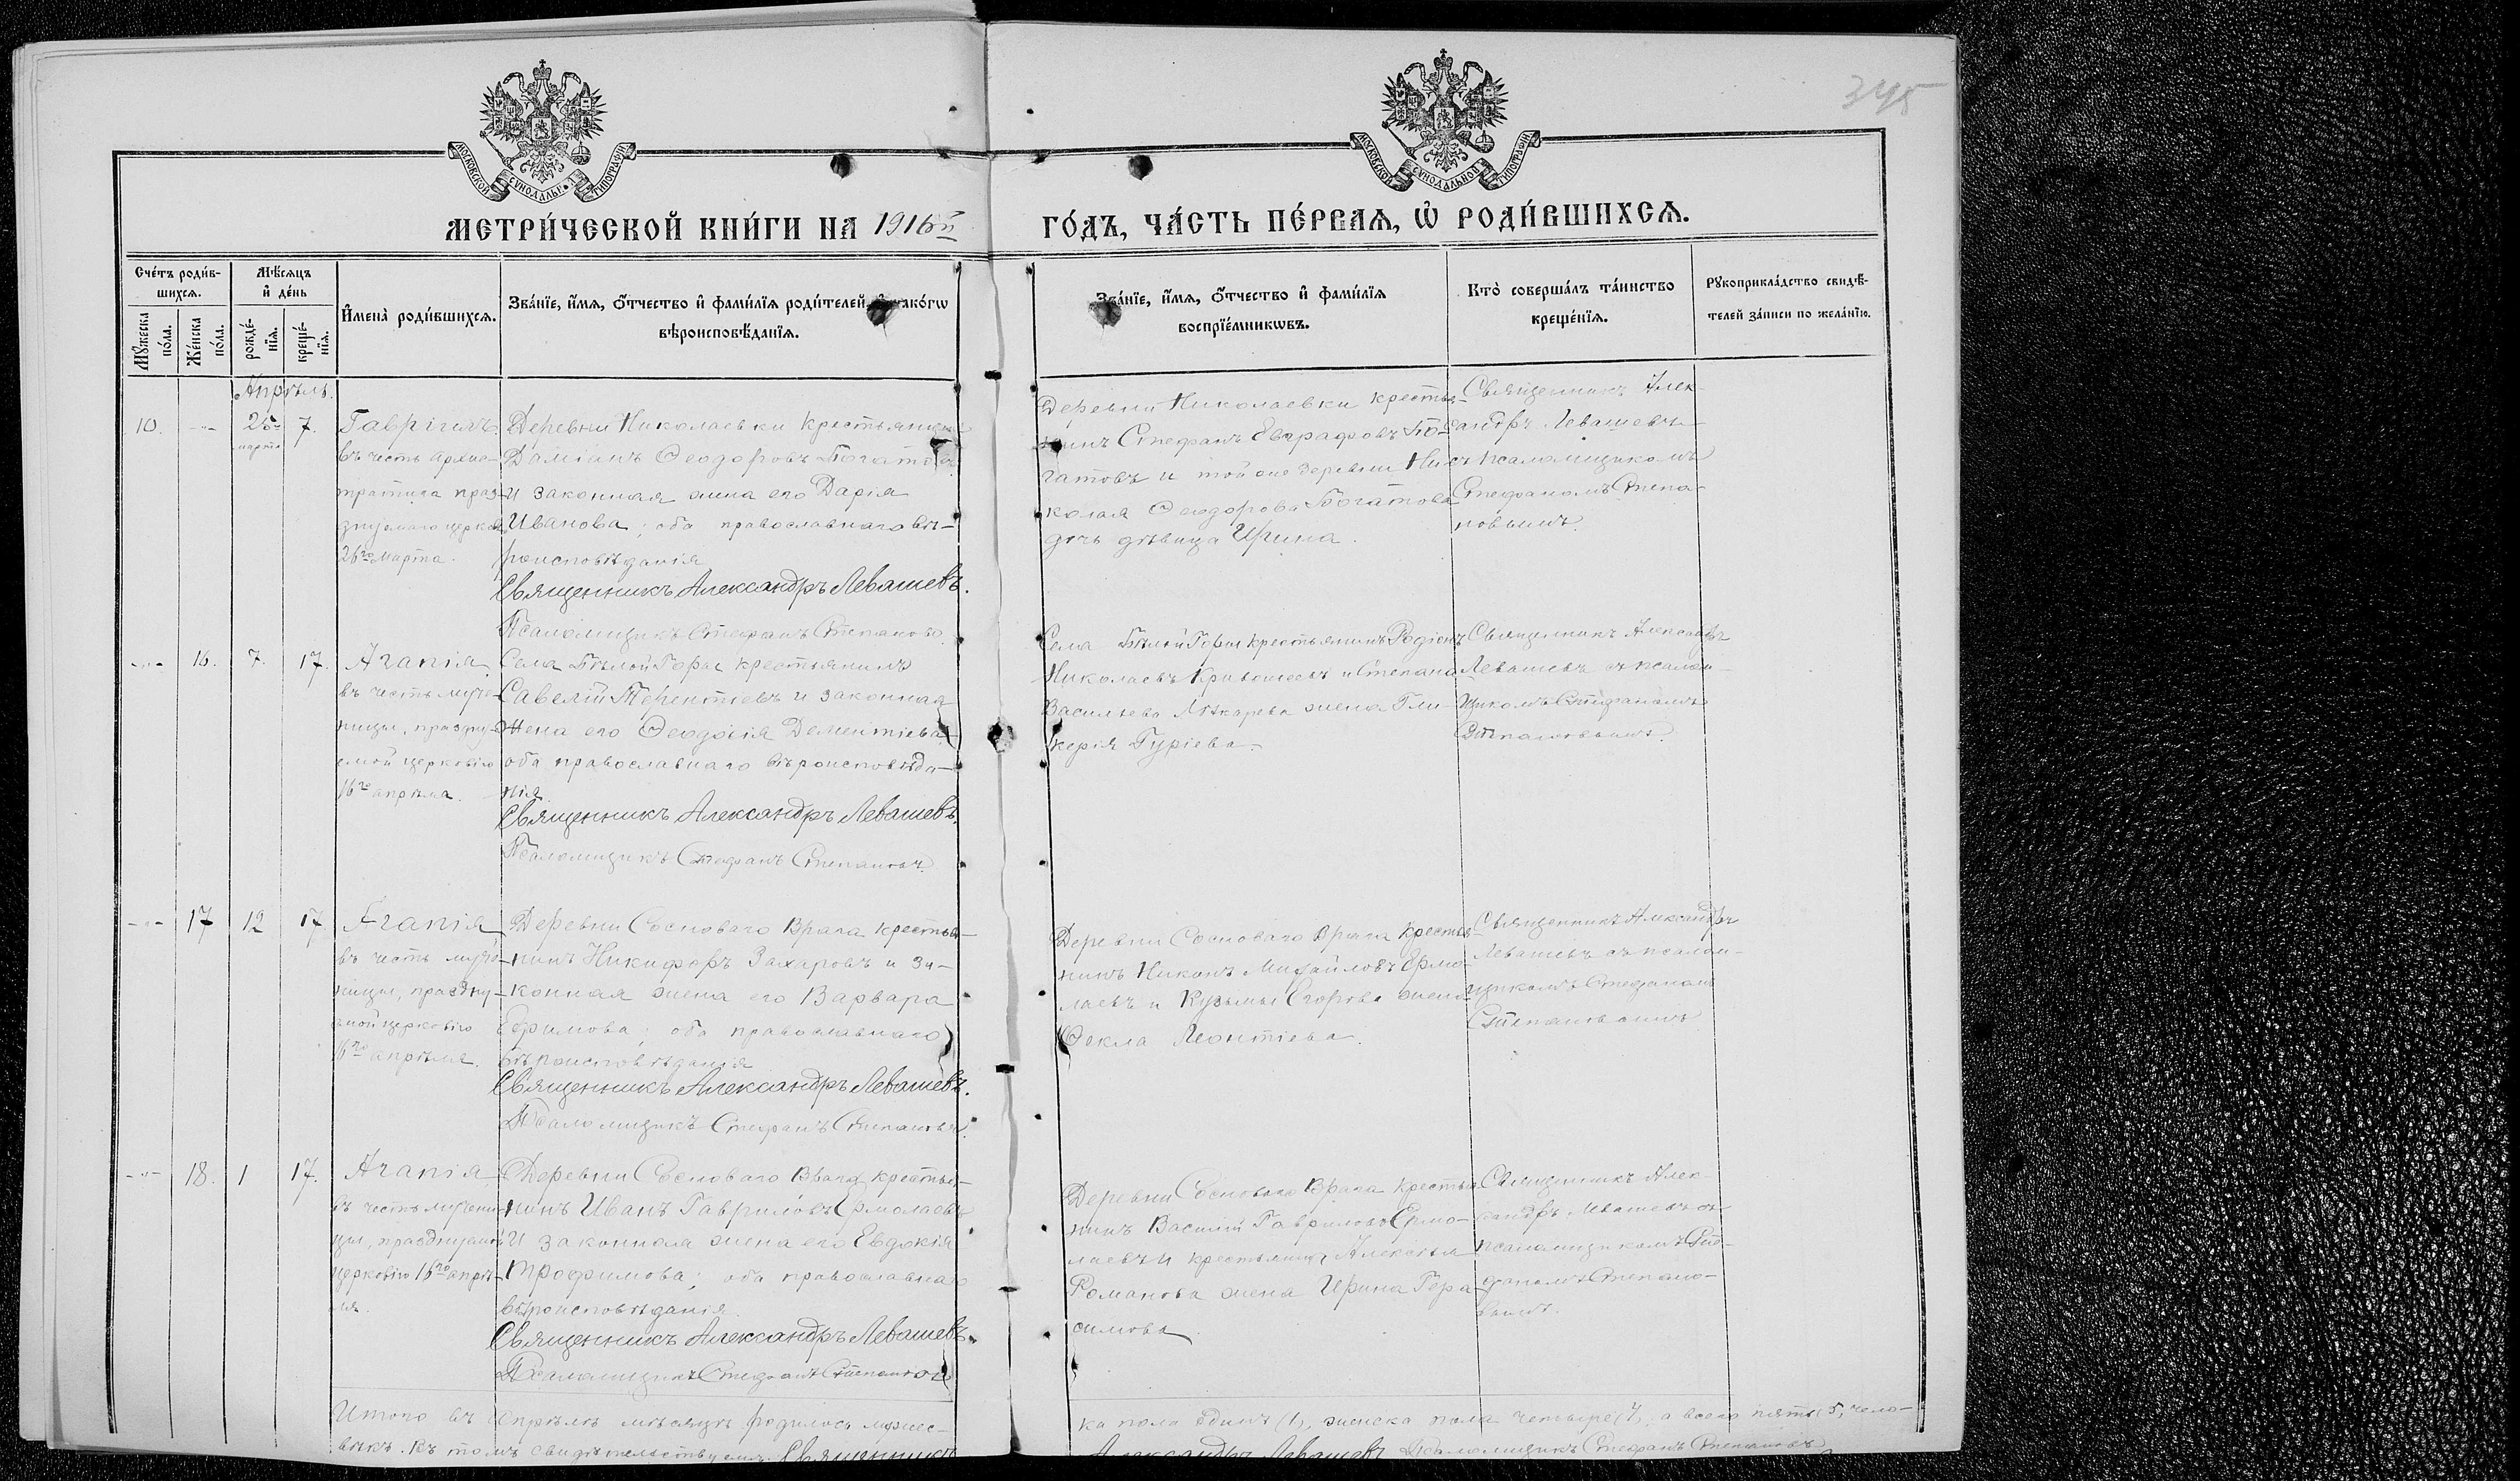 345
МОСКОВСКОЙ СѴНОДАЛЬНОЙ ТИПОГРАФІИ
МОСКОВСКОЙ СѴНОДАЛЬНОЙ ТИПОГРАФІИ
МЕТРИ́ЧЕСКОЙ КНИ́ГИ НА 1916ый ГО́ДЪ, ЧА́СТЬ ПЕ́РВАѦ, Ѡ҆ РОДИ́ВШИХСѦ.
Сче́тъ роди́в-
шихсѧ.
Мꙋ́жеска по́ла.
Же́нска по́ла.
Мѣ́сѧцъ
и҆ де́нь
рожде́-нїѧ.
креще́-нїѧ.
И҆мена̀ роди́вшихсѧ.
Зва́нїе, и҆́мѧ, ѻ҆́тчество и҆ фами́лїѧ роди́телей, и҆ како́гѡ
вѣроисповѣ́данїѧ.
Зва́нїе, и҆́мѧ, ѻ҆́тчество и҆ фами́лїѧ
воспрїе́мникѡвъ.
Кто̀ соверша́лъ та́инство
креще́нїѧ.
Рꙋкоприкла́дство свидѣ́-
телей за́писи по жела́нїю.
Апрѣль.
10.
-"-
25
марта
7.
Гавріилъ
въ честь архис-
тратига праз-
днуемаго церков
26го марта.
Деревни Николаевки крестьянинъ
Даміанъ Ѳеодоровъ Богатовъ
и законная жена его Дарія
Иванова; оба православнаго вѣ-
роисповѣданія
Священникъ Александръ Левашевъ.
Псаломщикъ Стефанъ Степановъ
Деревни Николаевки крестья-
нинъ Стефанъ Евграфовъ Бо-
гатовъ и той же деревни Ни-
колая Ѳеодорова Богатова
дочь дѣвица Ирина.
Священникъ Алек-
сандръ Левашевъ
съ псаломщикомъ
Стефаномъ Степа-
новымъ.
-"-
16.
7.
17.
Агапія
въ честь муче-
ницы, праздну-
емой церковію
16го апрѣля.
Села Бѣлой Горы крестьянинъ
Савелій Терентіевъ и законная
жена его Ѳеодосія Дементіева
оба православнаго вѣроисповѣда-
нія.
Священникъ Александръ Левашевъ.
Псаломщикъ Стефанъ Степановъ.
Села Бѣлой Горы крестьянинъ Родіонъ
Николаевъ Кривошеевъ и Степана
Васильева Лѣкарева жена Гли-
керія Гуріева.
Священникъ Александръ
Левашевъ съ псалом-
щикомъ Стефаномъ
Степановымъ.
-"-
17
12
17
Агапія
въ честь муче-
ницы, праздну-
емой церковію
16го апрѣля.
Деревни Сосноваго Врага крестья-
нинъ Никифоръ Захаровъ и за-
конная жена его Варвара
Ефимова; оба православнаго
вѣроисповѣданія
Священникъ Александръ Левашевъ.
Псаломщикъ Стефанъ Степановъ.
Деревни Сосноваго Врага крестья-
нинъ Никонъ Михайловъ Ермо-
лаевъ и Кузьмы Егорова жена
Ѳекла Леонтіева.
Священникъ Александръ
Левашевъ съ псалом-
щикомъ Стефаномъ
Степановымъ
-"-
18.
1
17.
Агапія
въ честь мучени-
цы, празднуемой
церковію 16го апрѣ-
ля.
Деревни Сосноваго Врага крестья-
нинъ Иванъ Гавриловъ Ермолаевъ
и законная жена его Евдокія
Трофимова; оба православнаго
вѣроисповѣданія.
Священникъ Александръ Левашевъ.
Псаломщикъ Стефанъ Степановъ
Деревни Сосноваго Врага крестья-
нинъ Василій Гавриловъ Ермо-
лаевъ и крестьянина Алексѣя
Романова жена Ирина Гера-
симова
Священникъ Алек-
сандръ Левашевъ съ
псаломщикомъ Сте-
фаномъ Степано-
вымъ.
Итого въ Апрѣлѣ мѣсяцѣ родилось мужес-
ка пола одинъ (1), женска пола четыре (4), а всего пять (5) чело-
вѣкъ. Въ томъ свидѣтельствуемъ: Священникъ
Александръ Левашевъ Псаломщикъ Стефанъ Степановъ